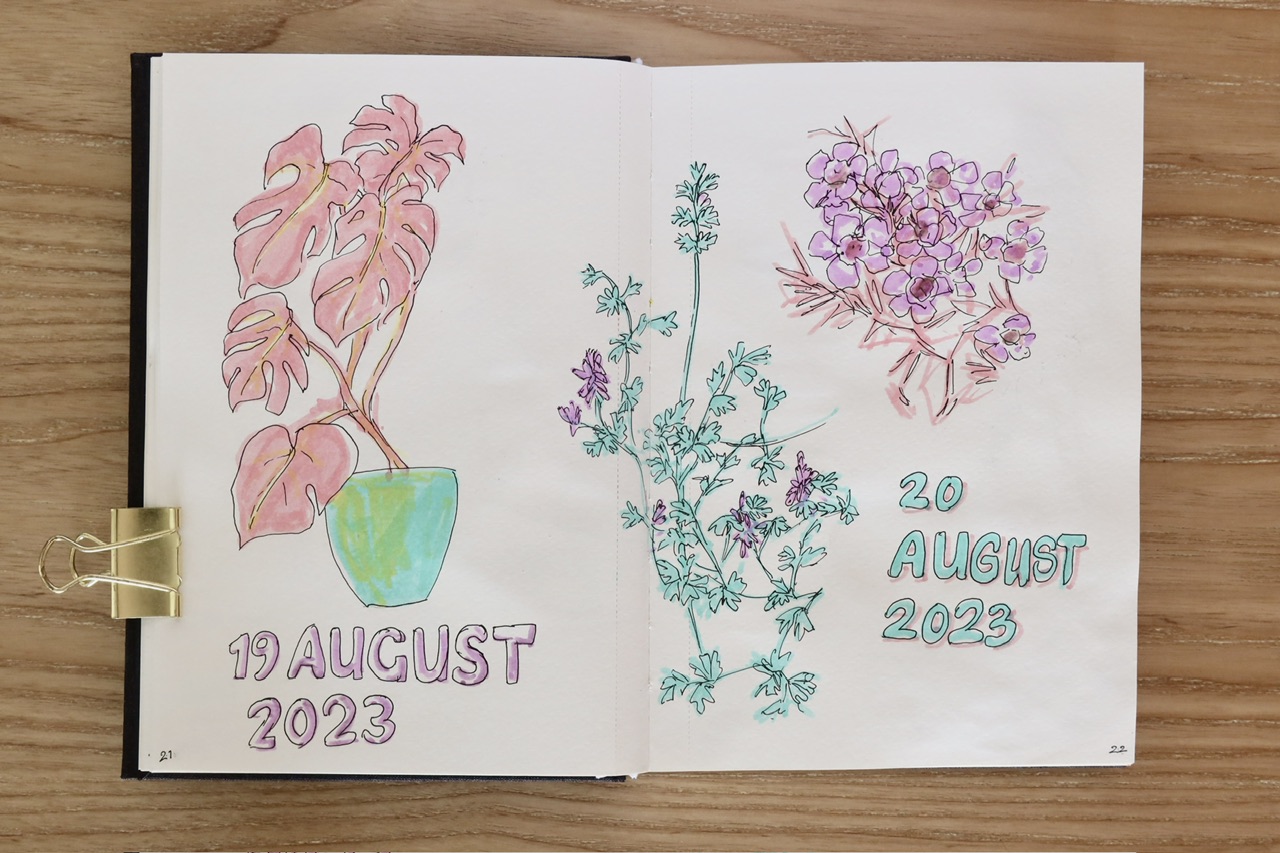 19 AUGUST
2023
21
20
AUGUST
2023
22